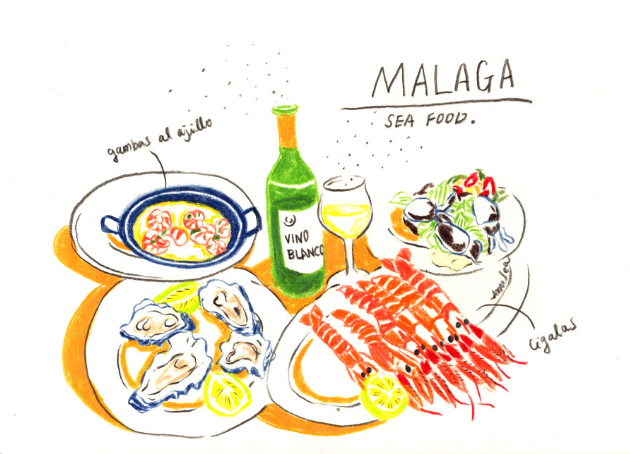 MALAGA
SEA FOOD.
gambas al ajillo
VINO
BLANCO
cigalas